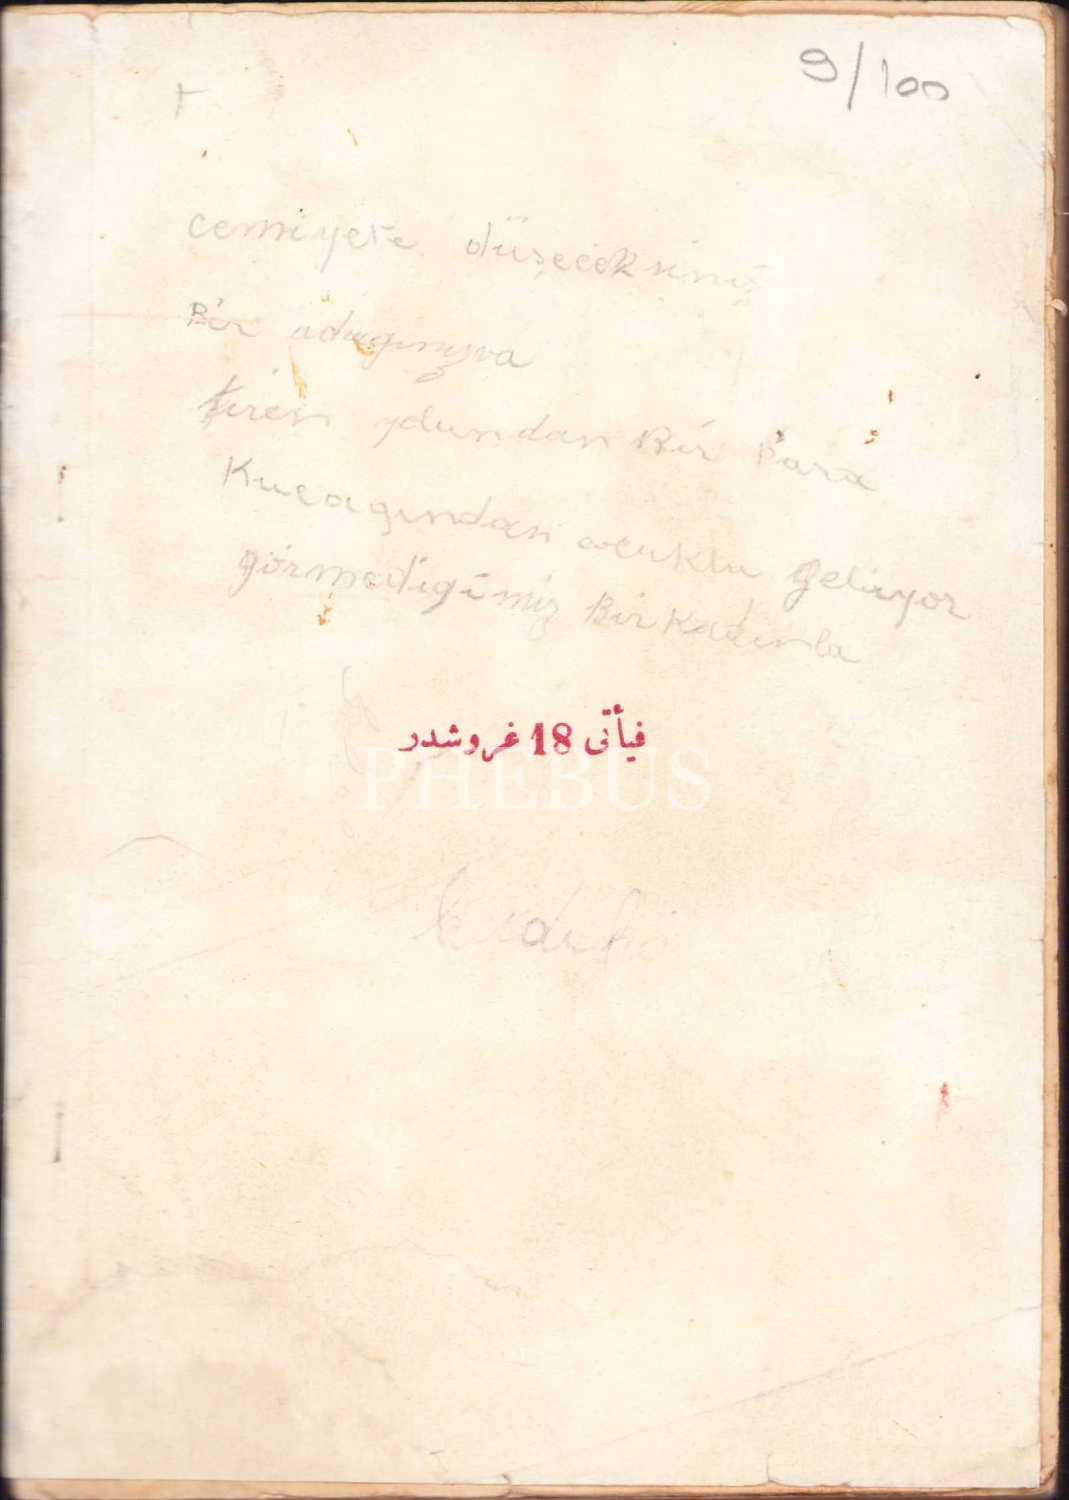 9/100
cemiyete düşeceksiniz
Bir adagınızva
tiren yolundan Bir Para
Kucagından cocukla geliyor
görmedigimiz Bir Kadınla
فيأتى 18 غروشدر
PHEBUS